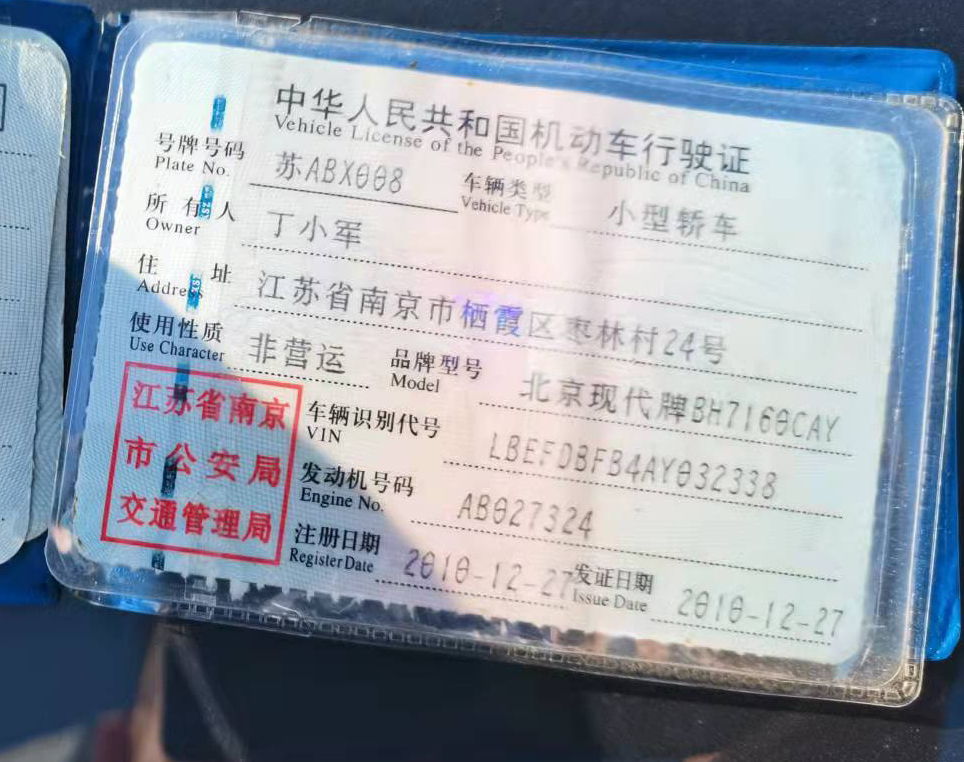 中华人民共和国机动车行驶证
Vehicle License of the People's Republic of China
号牌号码 苏ABX008 车辆类型 小型轿车
Plate No. Vehicle Type
所有人 丁小军
Owner
住址 江苏省南京市栖霞区枣林村24号
Address
使用性质 非营运 品牌型号 北京现代牌BH7160CAY
Use Character Model
江苏省南京
市公安局
交通管理局
车辆识别代号 LBEFDBFB4AY032338
VIN
发动机号码 AB027324
Engine No.
注册日期 2010-12-27 发证日期 2010-12-27
Register Date Issue Date